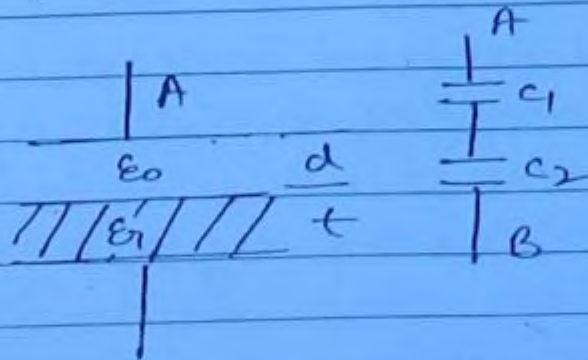 A
A
C1
ε0 d C2
εr t
B